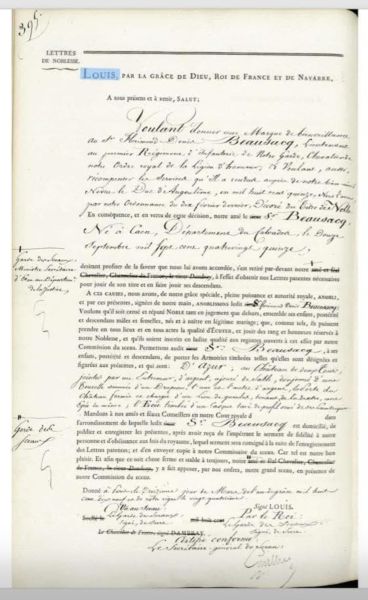 395
LETTRES
DE NOBLESSE.
LOUIS, PAR LA GRÂCE DE DIEU, ROI DE FRANCE ET DE NAVARRE,
A tous présens et à venir, SALUT;
Voulant donner une Marque de bienveillance
au Sr Denis BEAUSACQ, Lieutenant
au premier Régiment d'Infanterie de Notre Garde, Chevalier de
notre Ordre royal de la Légion d'honneur, et Voulant,
récompenser les Services qu'il a rendus auprès de notre bien aimé
Neveu le Duc d'Angoulême, en mil huit cent quinze, Nous l'avons
par notre Ordonnance du dix février dernier, Décoré du Titre de Noble
En conséquence, et en vertu de cette décision, notre amé le Sr Beausacq,
Né à Caen, Département du Calvados, le Douze
Septembre mil sept cent quatrevingt quinze,
Garde des Sceaux
Ministre Secrétaire
d'État au Département
de la Justice
desirant profiter de la faveur que nous lui avons accordée, s'est retiré par-devant notre amé et féal
Chevalier, Chancelier de France, le sieur Dambray, à l'effet d'obtenir nos Lettres patentes nécessaires
pour jouir de son titre et en faire jouir ses descendans.
A CES CAUSES, nous avons, de notre grâce spéciale, pleine puissance et autorité royale, ANOBLI,
et par ces présentes, signées de notre main, ANOBLISSONS ledit Sr Beausacq
Voulons qu'il soit censé et réputé NOBLE tant en jugement que dehors, ensemble ses enfans, postérité
et descendans mâles et femelles, nés et à naître en légitime mariage; que, comme tels, ils puissent
prendre en tous lieux et en tous actes la qualité d'ÉCUYER, et jouir des rang et honneurs réservés à
notre Noblesse, et qu'ils soient inscrits en ladite qualité aux registres ouverts à cet effet par notre
Commission du sceau. Permettons audit Sr Beausacq, à ses
enfans, postérité et descendans, de porter les Armoiries timbrées telles qu'elles sont désignées et
figurées aux présentes, et qui sont: D'azur, au Château
Mandons à nos amés et féaux Conseillers en notre Cour royale d dans
l'arrondissement de laquelle ledit Sr Beausacq est domicilié, de
publier et enregistrer les présentes, après avoir reçu de l'impétrant le serment de fidélité à notre
personne et d'obéissance aux lois du royaume, lequel serment sera consigné à la suite de l'enregistrement
des Lettres patentes; et d'en envoyer copie à notre Commission du sceau. Car tel est notre bon
plaisir. Et afin que ce soit chose ferme et stable à toujours, notre amé et féal Chevalier, Chancelier
de France, le sieur Dambray, y a fait apposer, par nos ordres, notre grand sceau, en présence de
notre Commission du sceau.
Garde des
Sceaux
Signé LOUIS.
Par le Roi:
Le Garde des Sceaux
Le Chevalier de France, signé DAMBRAY.
Certifié conforme
Le Secrétaire général du Sceau